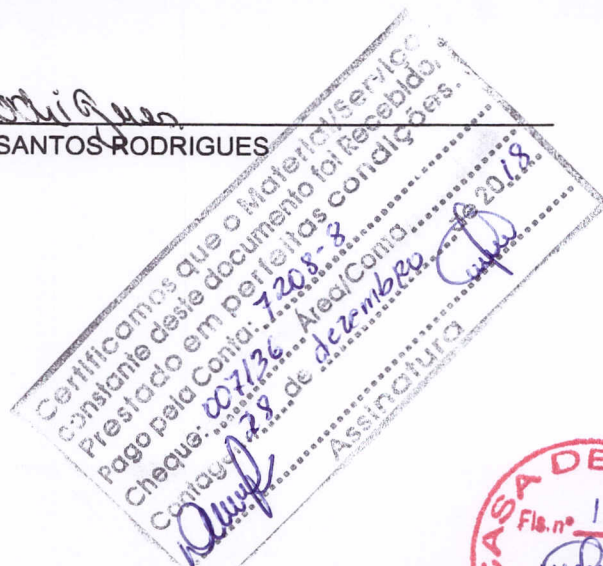 SANTOS RODRIGUES
Certificamos que o Material/Serviço
constante deste documento foi Recebido,
Prestado em perfeitas condições.
Pago pela Conta: 7208-8
Cheque: 007136 Área/Conta
Contage 28 de dezembro de 2018
Assinatura
CASA DE
Fls. nº 1